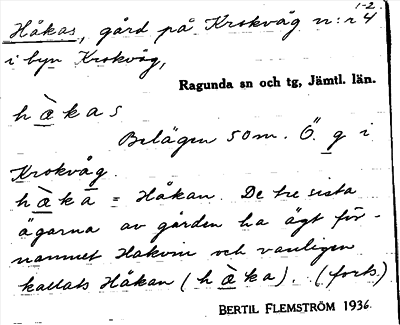 1-2.
Håkas, gård på Krokvåg n:r 4
i byn Krokvåg,
Ragunda sn och tg, Jämtl. län.
hæ̀kas
Belägen 50 m. Ö. g i
Krokvåg.
hæ̀ka = Håkan. De tre sista
ägarna av gården ha ägt för-
namnet Hakvin och vanligen
kallats Håkan (hæ̀ka). (forts.)
BERTIL FLEMSTRÖM 1936.